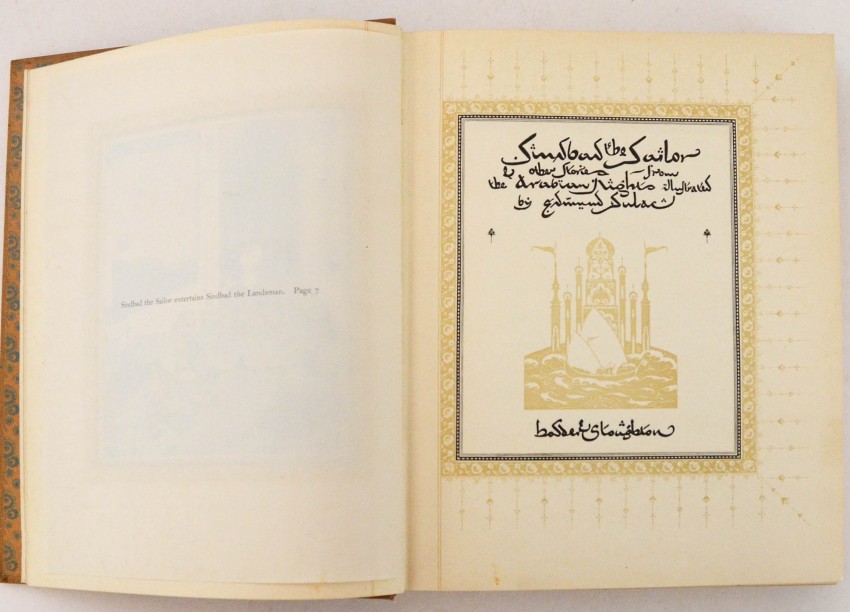 Sindbad the Sailor entertains Sindbad the Landsman. Page 7
Sindbad the Sailor
& other stories from
the Arabian Nights illustrated
by Edmund Dulac
hodder & stoughton